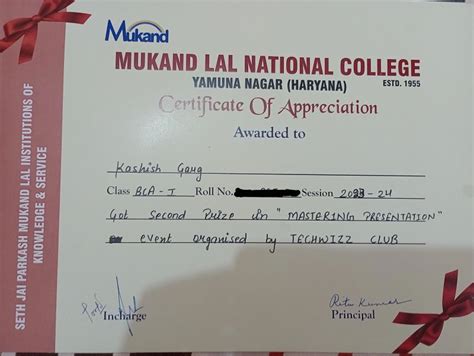 Mukand
MUKAND LAL NATIONAL COLLEGE
YAMUNA NAGAR (HARYANA) ESTD. 1955
Certificate Of Appreciation
Awarded to
Kashish Garg
Class BCA-I Roll No. Session 2023-24
Got Second Prize in "MASTERING PRESENTATION"
event organised by TECHWIZZ CLUB
Incharge
Ritu Kumar
Principal
SETH JAI PARKASH MUKAND LAL INSTITUTIONS OF
KNOWLEDGE & SERVICE